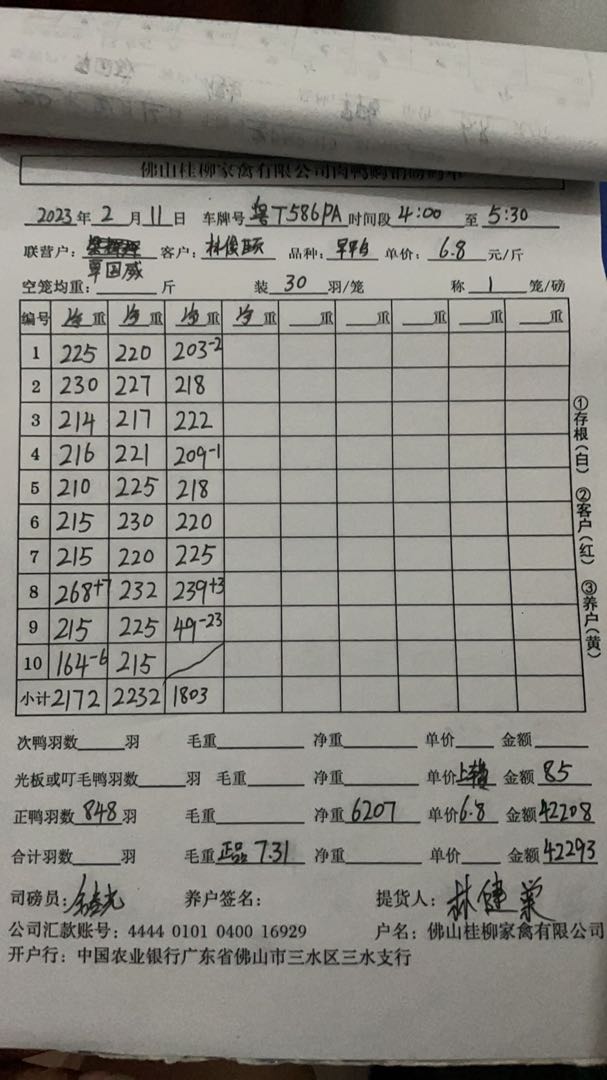 佛山桂柳家禽有限公司肉鸭
2023年 2 月 11 日 车牌号 粤T586PA 时间段 4:00 至 5:30
联营户: 客户: 林俊颐 品种: 单价: 6.8 元/斤
覃国威
空笼均重: 斤 装 30 羽/笼 称 1 笼/磅
编号 净重 净重 净重 净重 重 重 重 重
1 225 220 203-2
2 230 227 218
3 214 217 222
4 216 221 209-1
5 210 225 218
6 215 230 220
7 215 220 225
8 268+7 232 239+3
9 215 225 49-23
10 164-6 215
小计 2172 2232 1803
①存根(白) ②客户(红) ③养户(黄)
次鸭羽数 羽 毛重 净重 单价 金额
光板或叮毛鸭羽数 羽 毛重 净重 单价 金额 85
正鸭羽数 848 羽 毛重 净重 6207 单价 6.8 金额 42208
合计羽数 羽 毛重 正品 7.31 净重 单价 金额 42293
司磅员: 养户签名: 提货人: 林健
公司汇款账号: 4444 0101 0400 16929 户名: 佛山桂柳家禽有限公司
开户行: 中国农业银行广东省佛山市三水区三水支行